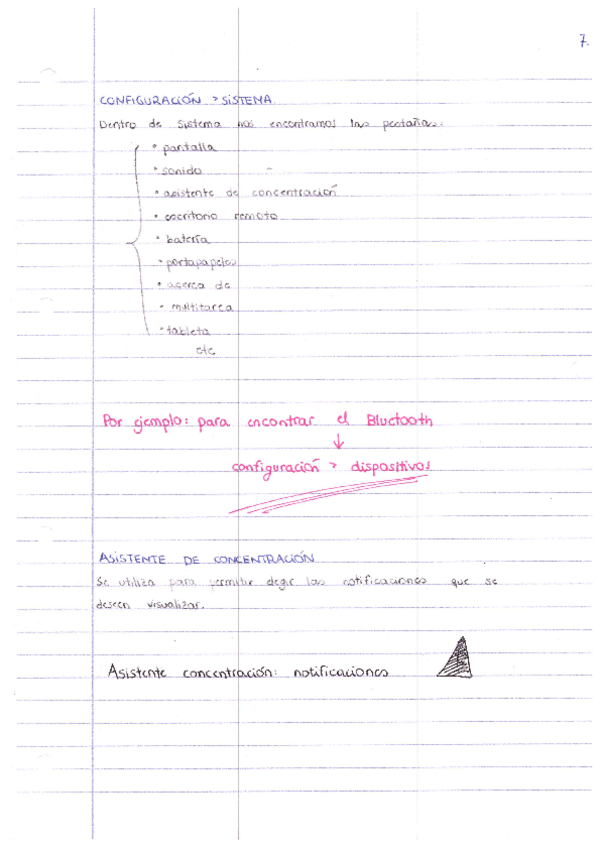 7.
CONFIGURACIÓN > SISTEMA
Dentro de Sistema nos encontramos las pestañas:
• pantalla
• sonido
• asistente de concentración
• escritorio remoto
• batería
• portapapeles
• acerca de
• multitarea
• tableta
etc
Por ejemplo: para encontrar el Bluetooth
↓
configuración > dispositivos
ASISTENTE DE CONCENTRACIÓN
Se utiliza para permitir elegir las notificaciones que se
deseen visualizar.
Asistente concentración: notificaciones